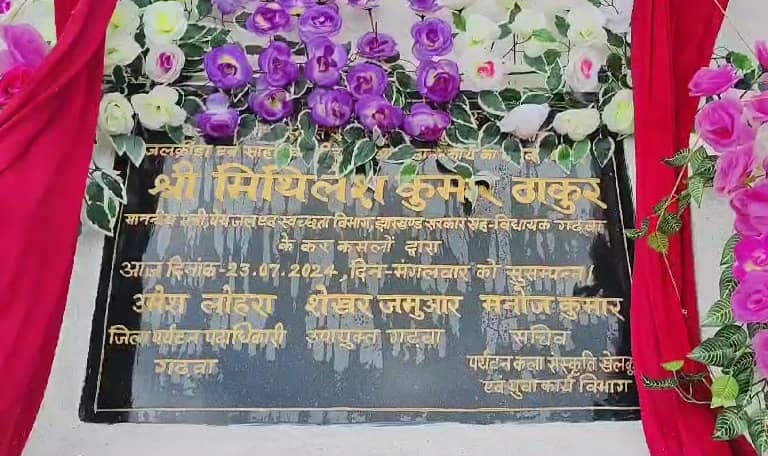 श्री मिथिलेश कुमार ठाकुर
माननीय मंत्री पेय जल एवं स्वच्छता विभाग, झारखण्ड सरकार सह-विधायक गढ़वा
के कर कमलों द्वारा
आज दिनांक-23.07.2024, दिन-मंगलवार को सुसम्पन्न।
उमेश लोहरा शेखर जमुआर मनोज कुमार
जिला पर्यटन पदाधिकारी उपायुक्त गढ़वा सचिव
गढ़वा पर्यटन कला संस्कृति खेलकूद
एवं युवा कार्य विभाग